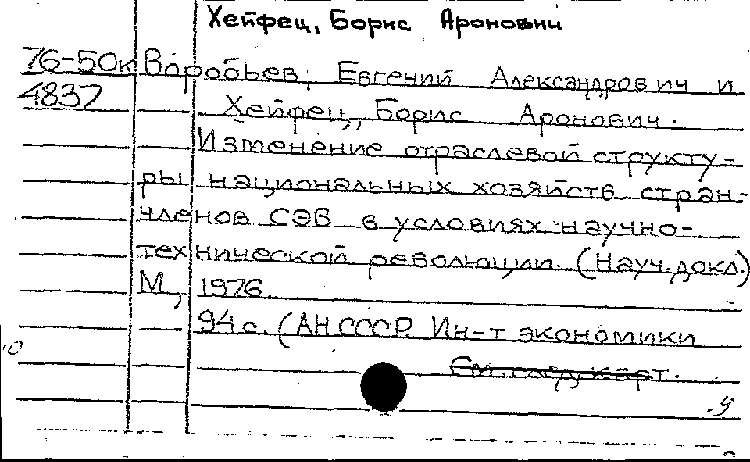 Хейфец, Борис Аронович
76-50к Воробьев, Евгений Александрович и
4837 Хейфец, Борис Аронович.
Изменение отраслевой структу-
ры национальных хозяйств стран-
членов СЭВ в условиях научно-
технической революции. (Науч. докл.)
М., 1976.
94 с. (АН СССР. Ин-т экономики
См. след. карт.